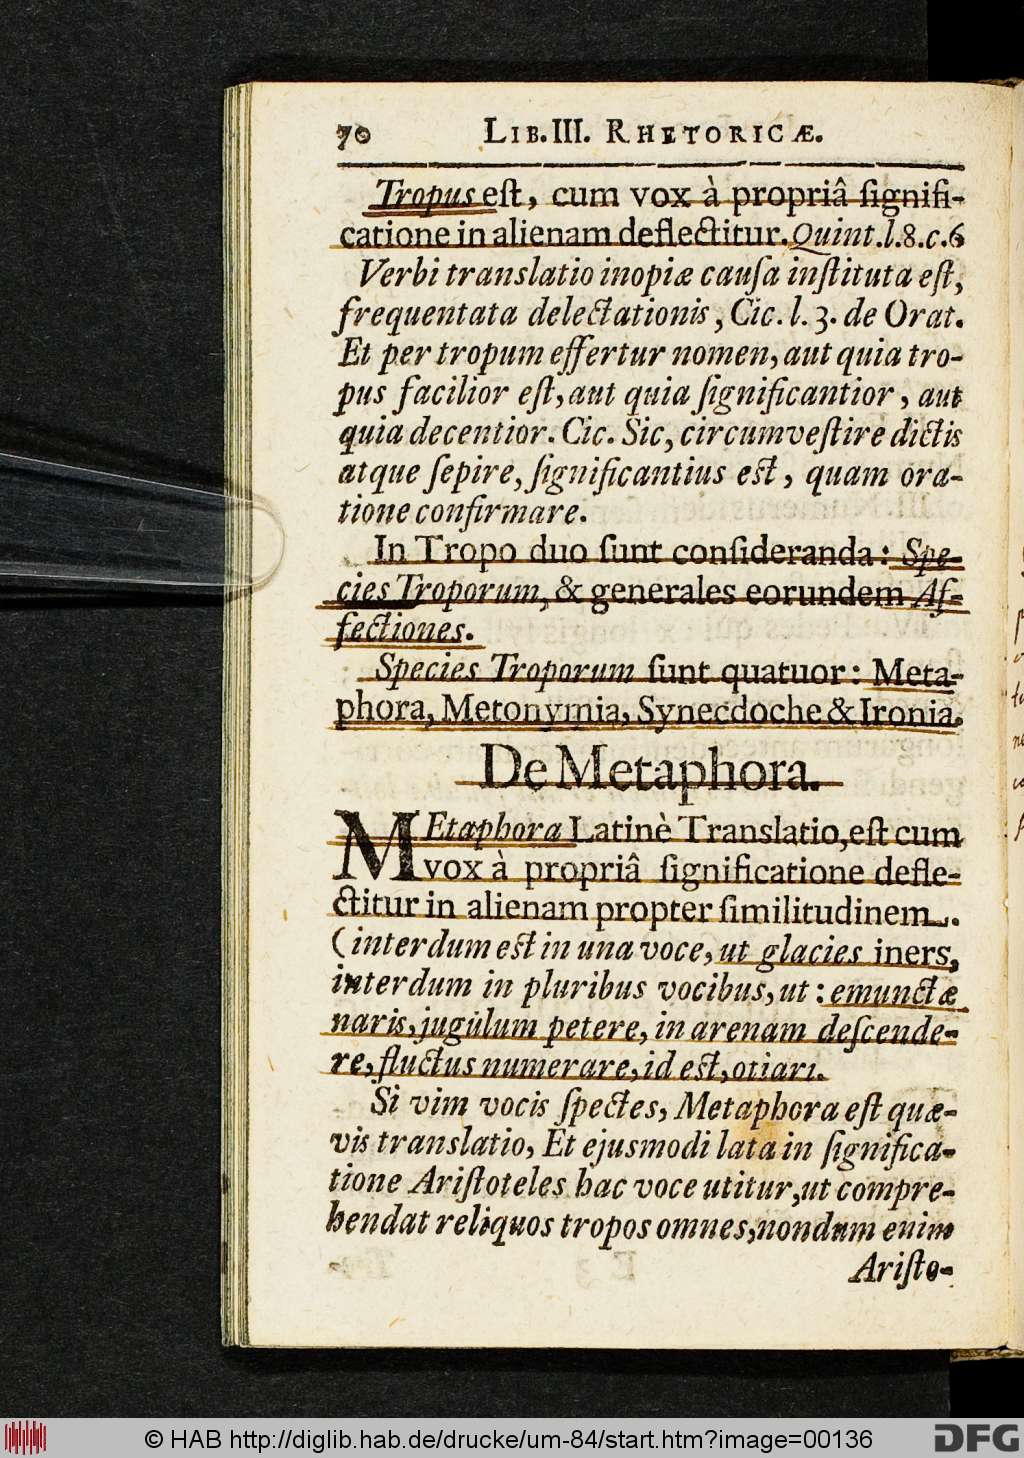 70 LIB. III. RHETORICÆ.
Tropus est, cum vox à propriâ signifi-
catione in alienam deflectitur. Quint. l. 8. c. 6
Verbi translatio inopiæ causa instituta est,
frequentata delectationis, Cic. l. 3. de Orat.
Et per tropum effertur nomen, aut quia tro-
pus facilior est, aut quia significantior, aut
quia decentior. Cic. Sic, circumvestire dictis
atque sepire, significantius est, quam ora-
tione confirmare.
In Tropo duo sunt consideranda: Spe-
cies Troporum, & generales eorundem Af-
fectiones.
Species Troporum sunt quatuor: Meta-
phora, Metonymia, Synecdoche & Ironia.
De Metaphora.
MEtaphora Latinè Translatio, est cum
vox à propriâ significatione defle-
ctitur in alienam propter similitudinem.
(interdum est in una voce, ut glacies iners,
interdum in pluribus vocibus, ut: emunctæ
naris, jugulum petere, in arenam descende-
re, fluctus numerare, id est, otiari.
Si vim vocis spectes, Metaphora est quæ-
vis translatio, Et ejusmodi lata in significa-
tione Aristoteles hac voce utitur, ut compre-
hendat reliquos tropos omnes, nondum enim
Aristo-
© HAB http://diglib.hab.de/drucke/um-84/start.htm?image=00136
DFG